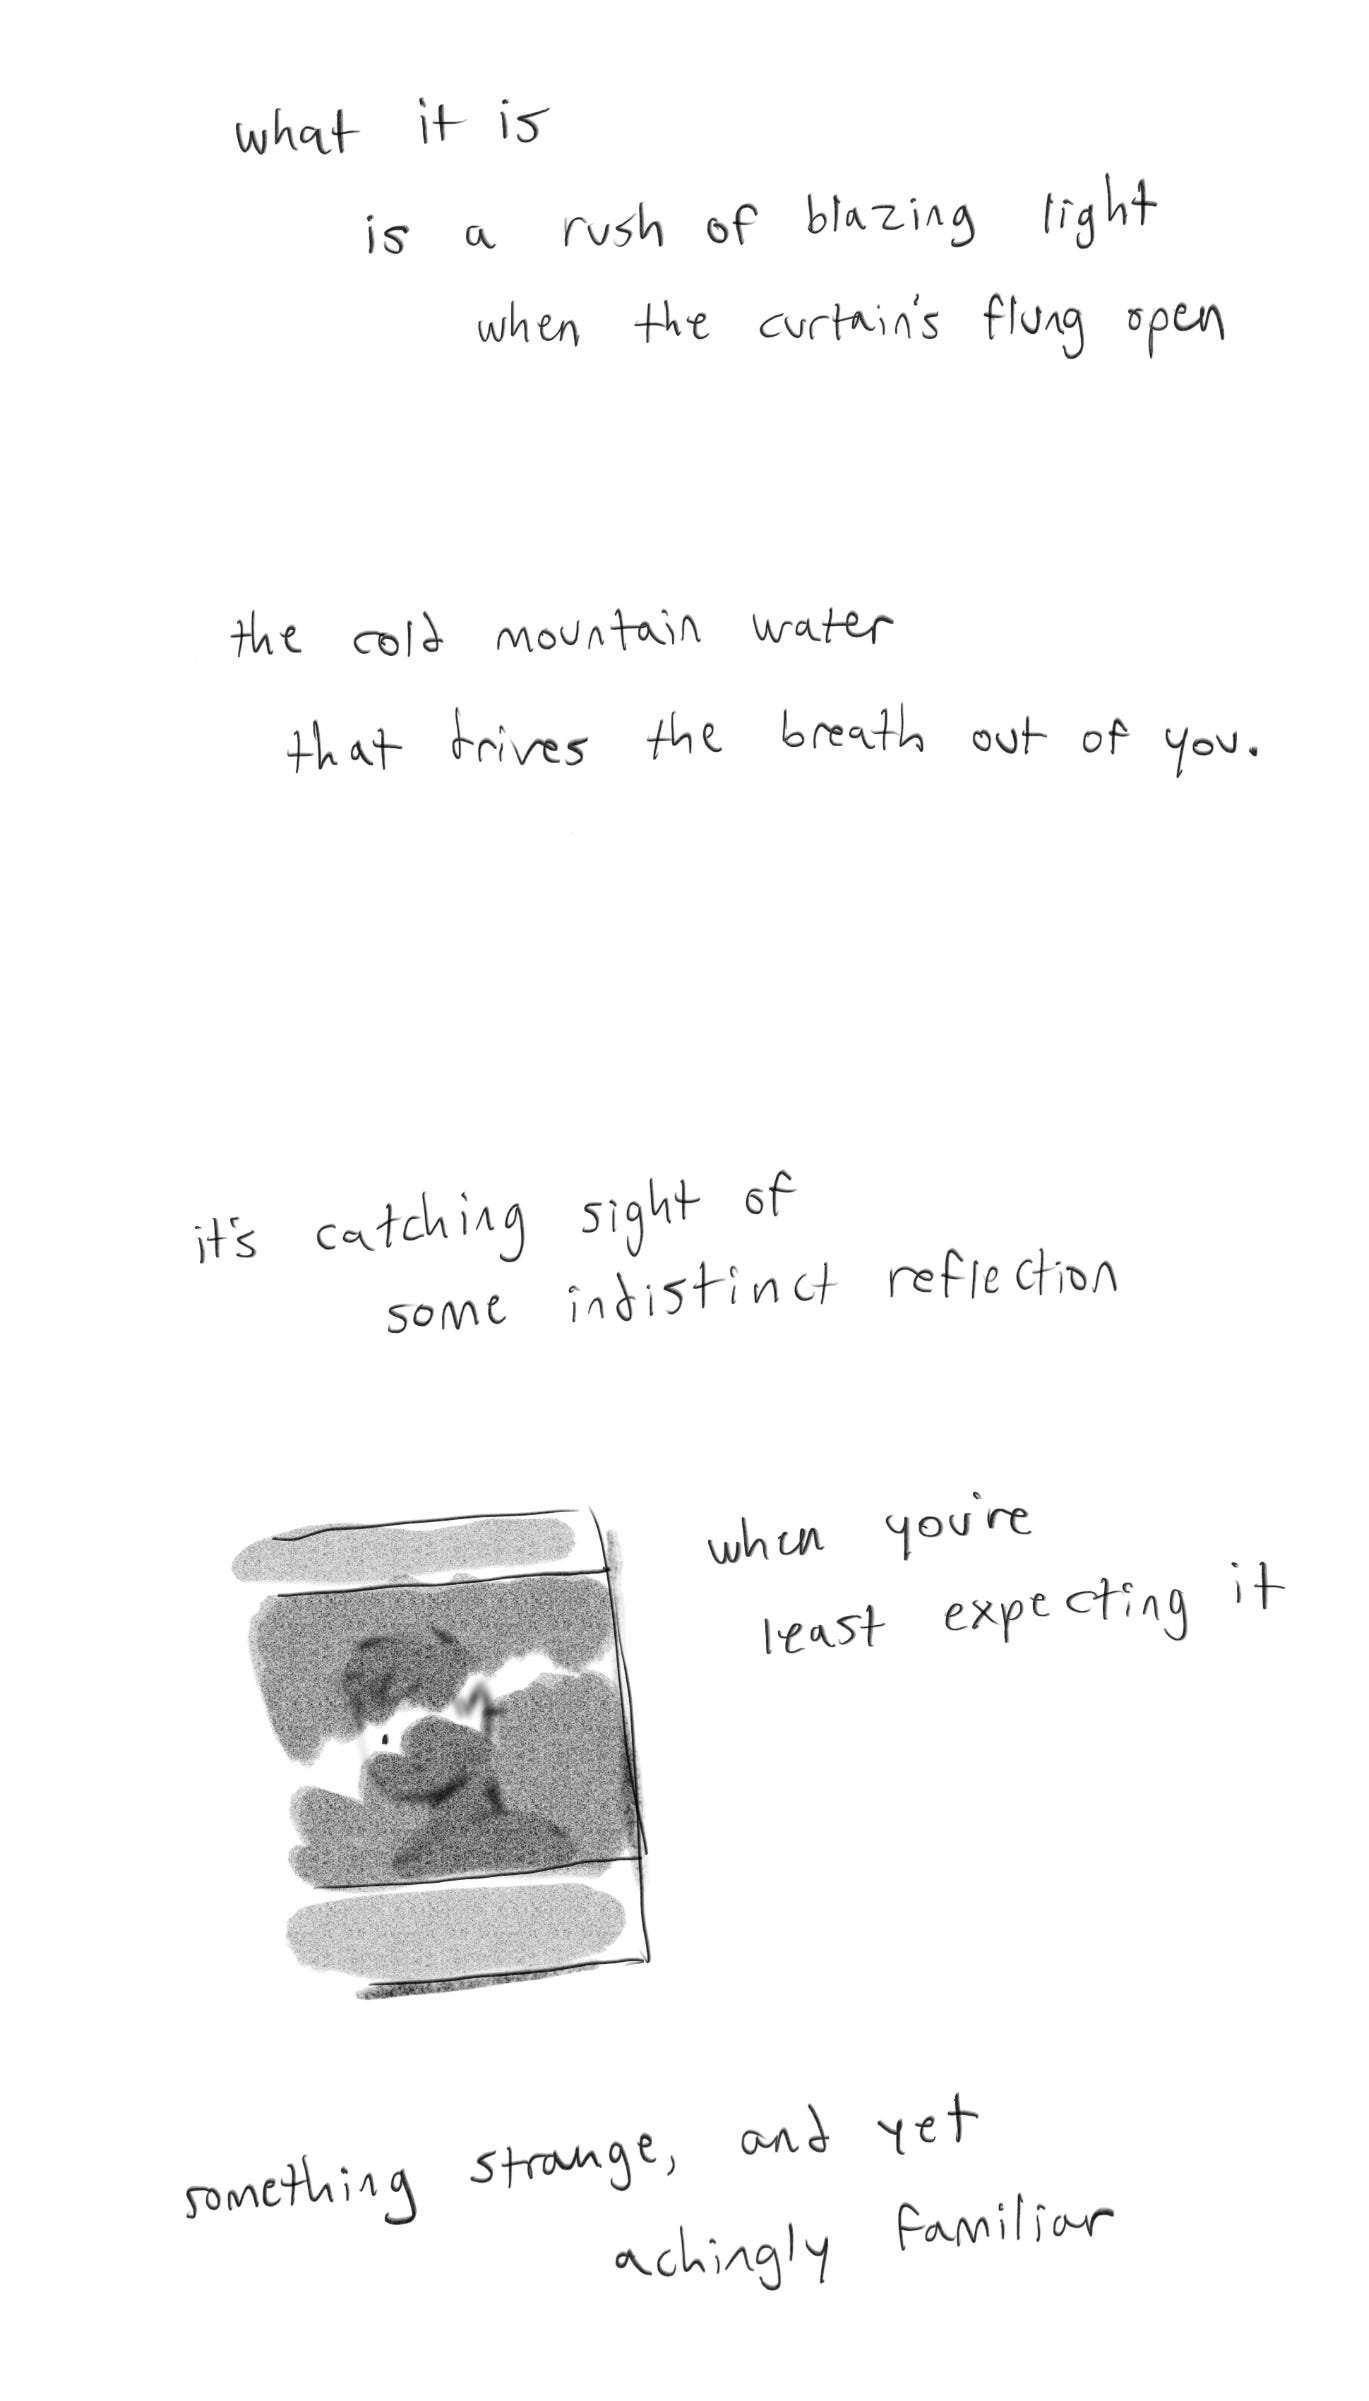 what it is
is a rush of blazing light
when the curtain's flung open
the cold mountain water
that drives the breath out of you.
it's catching sight of
some indistinct reflection
when you're
least expecting it
something strange, and yet
achingly familiar